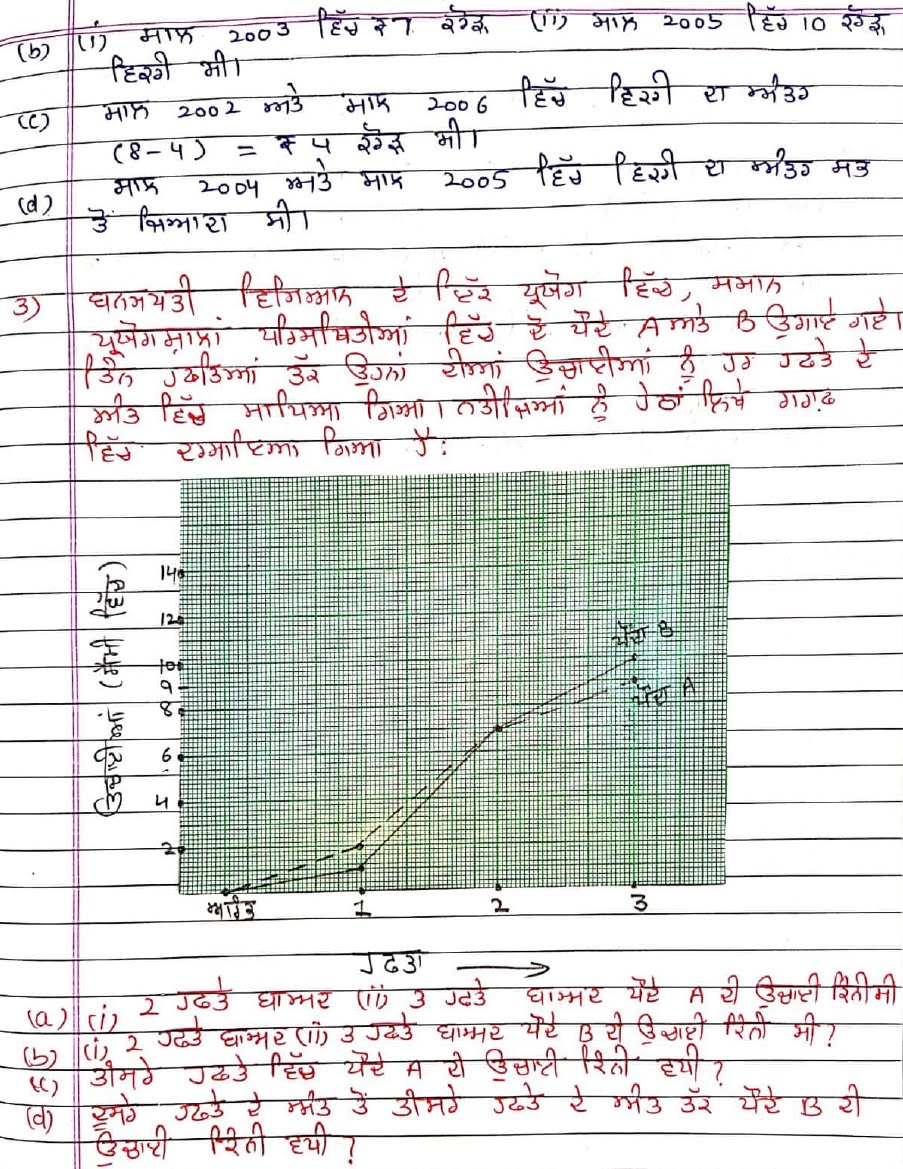 (b) (i) ਸਾਲ 2003 ਵਿੱਚ ₹7 ਕਰੋੜ (ii) ਸਾਲ 2005 ਵਿੱਚ 10 ਕਰੋੜ
ਵਿਕਰੀ ਸੀ।
(c) ਸਾਲ 2002 ਅਤੇ ਸਾਲ 2006 ਵਿੱਚ ਵਿਕਰੀ ਦਾ ਅੰਤਰ
(8-4) = ₹ 4 ਕਰੋੜ ਸੀ।
(d) ਸਾਲ 2004 ਅਤੇ ਸਾਲ 2005 ਵਿੱਚ ਵਿਕਰੀ ਦਾ ਅੰਤਰ ਸਭ
ਤੋਂ ਜਿਆਦਾ ਸੀ।
3) ਬਨਸਪਤੀ ਵਿਗਿਆਨ ਦੇ ਇੱਕ ਪ੍ਰਯੋਗ ਵਿੱਚ, ਸਮਾਨ
ਪ੍ਰਯੋਗਸ਼ਾਲਾ ਪਰਿਸਥਿਤੀਆਂ ਵਿੱਚ ਦੋ ਪੌਦੇ A ਅਤੇ B ਉਗਾਏ ਗਏ।
ਤਿੰਨ ਹਫਤਿਆਂ ਤੱਕ ਉਹਨਾਂ ਦੀਆਂ ਉਚਾਈਆਂ ਨੂੰ ਹਰ ਹਫਤੇ ਦੇ
ਅੰਤ ਵਿੱਚ ਮਾਪਿਆ ਗਿਆ। ਨਤੀਜਿਆਂ ਨੂੰ ਹੇਠਾਂ ਲਿਖੇ ਗਰਾਫ
ਵਿੱਚ ਦਰਸਾਇਆ ਗਿਆ ਹੈ:
ਉਚਾਈਆਂ (ਸੈਂਮੀ ਵਿੱਚ)
14
12
10
9
8
6
4
2
ਪੌਦਾ B
ਪੌਦਾ A
1 2 3
ਹਫਤਾ →
(a) (i) 2 ਹਫਤੇ ਬਾਅਦ (ii) 3 ਹਫਤੇ ਬਾਅਦ ਪੌਦੇ A ਦੀ ਉਚਾਈ ਕਿੰਨੀ ਸੀ
(b) (i) 2 ਹਫਤੇ ਬਾਅਦ (ii) 3 ਹਫਤੇ ਬਾਅਦ ਪੌਦੇ B ਦੀ ਉਚਾਈ ਕਿੰਨੀ ਸੀ?
(c) ਤੀਸਰੇ ਹਫਤੇ ਵਿੱਚ ਪੌਦੇ A ਦੀ ਉਚਾਈ ਕਿੰਨੀ ਵਧੀ?
(d) ਦੂਸਰੇ ਹਫਤੇ ਦੇ ਅੰਤ ਤੋਂ ਤੀਸਰੇ ਹਫਤੇ ਦੇ ਅੰਤ ਤੱਕ ਪੌਦੇ B ਦੀ
ਉਚਾਈ ਕਿੰਨੀ ਵਧੀ?